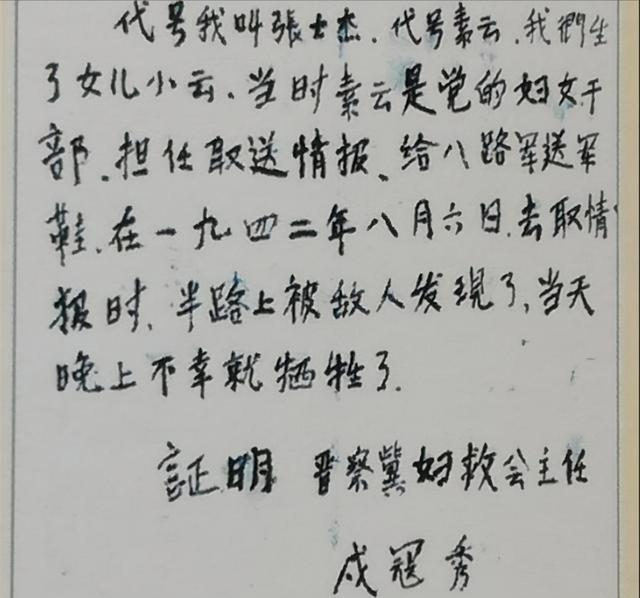 代号我叫張士杰、代号素云、我們生
了女儿小云、当时素云是党的妇女干
部、担任取送情报、给八路军送军
鞋、在一九四二年八月六日去取情
报时、半路上被敌人发現了,当天
晚上不幸就牺牲了.
証明 晋察冀妇救会主任
戎冠秀